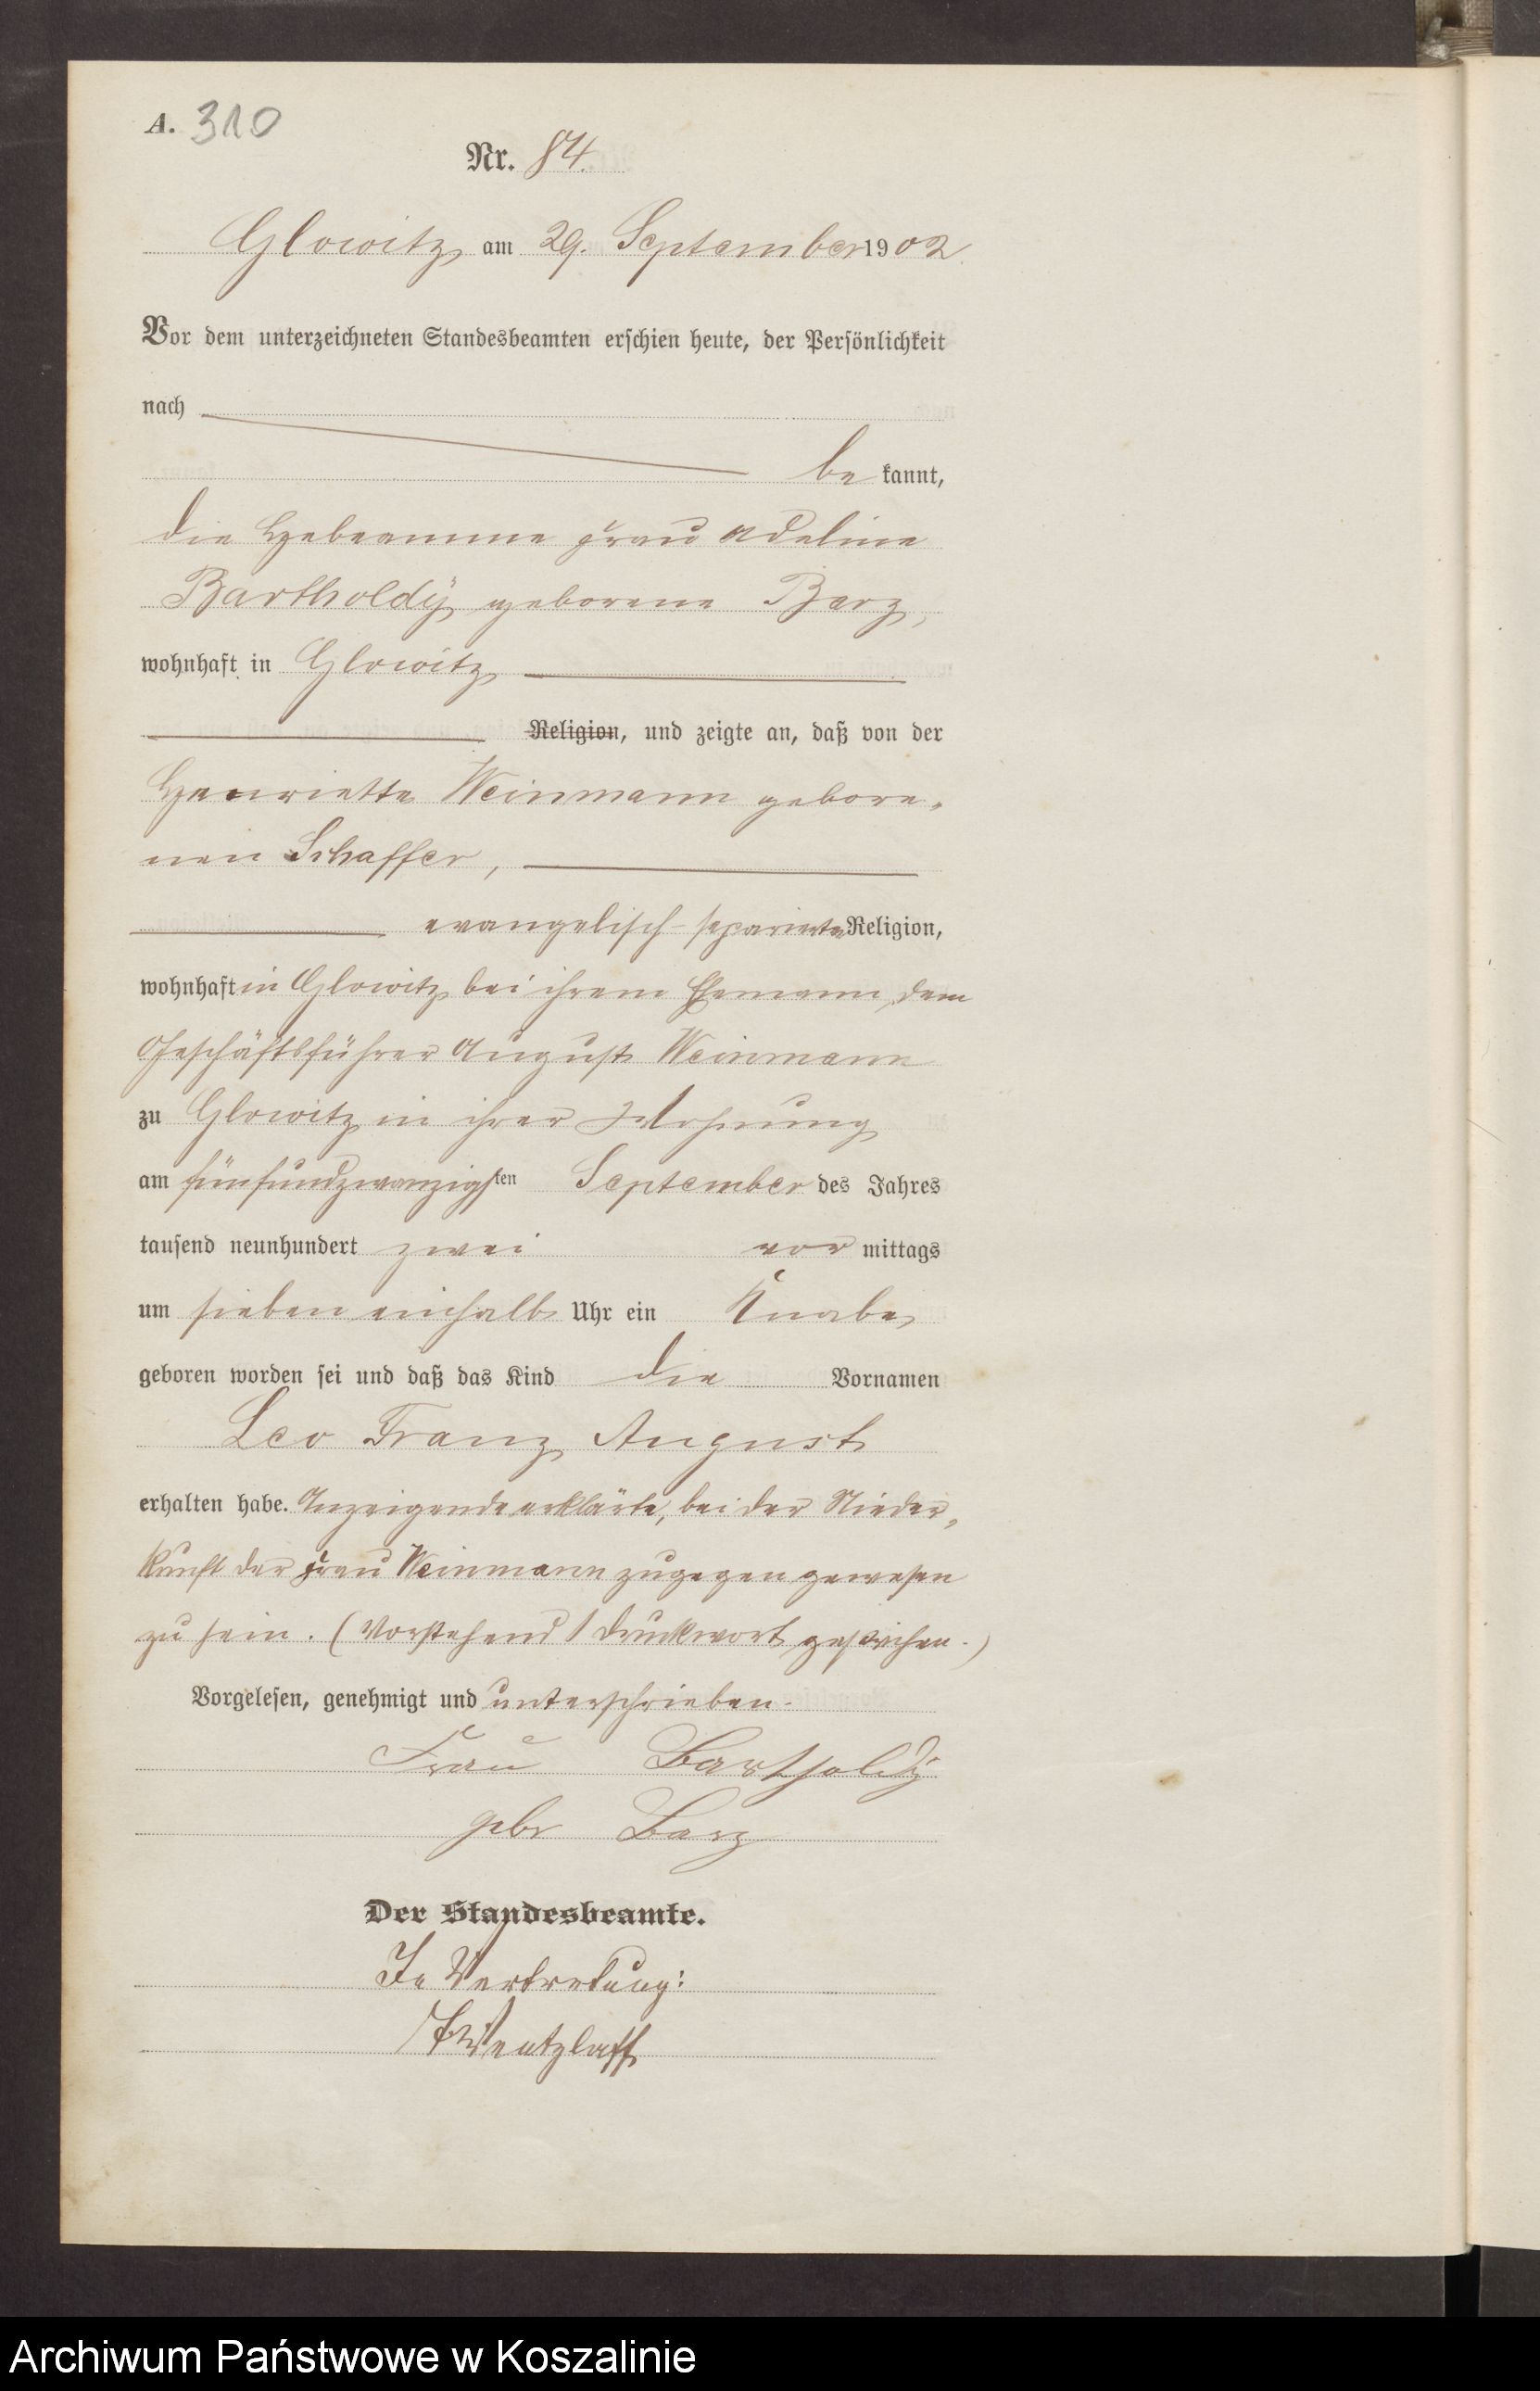 A. 310
Nr. 84.
Glowitz am 29. September 1902
Vor dem unterzeichneten Standesbeamten erschien heute, der Persönlichkeit
nach
be kannt,
die Hebeamme Frau Adeline
Bartholdÿ geborene Barz,
wohnhaft in Glowitz
Religion, und zeigte an, daß von der
Henriette Weinmann gebore-
nen Schaffer,
evangelisch-separierte Religion,
wohnhaft in Glowitz bei ihrem Ehemann, dem
Geschäftsführer August Weinmann
zu Glowitz in ihrer Wohnung
am fünfundzwanzigsten September des Jahres
tausend neunhundert zwei vor mittags
um sieben einhalb Uhr ein Knabe
geboren worden sei und daß das Kind die Vornamen
Leo Franz August
erhalten habe. Anzeigende erklärte, bei der Nieder-
kunft der Frau Weinmann zugegen gewesen
zu sein. (Vorstehend 1 Druckwort gestrichen.)
Vorgelesen, genehmigt und unterschrieben.
Frau Bartholdÿ
gebr Barz
Der Standesbeamte.
In Vertretung:
Wentzlaff
Archiwum Państwowe w Koszalinie